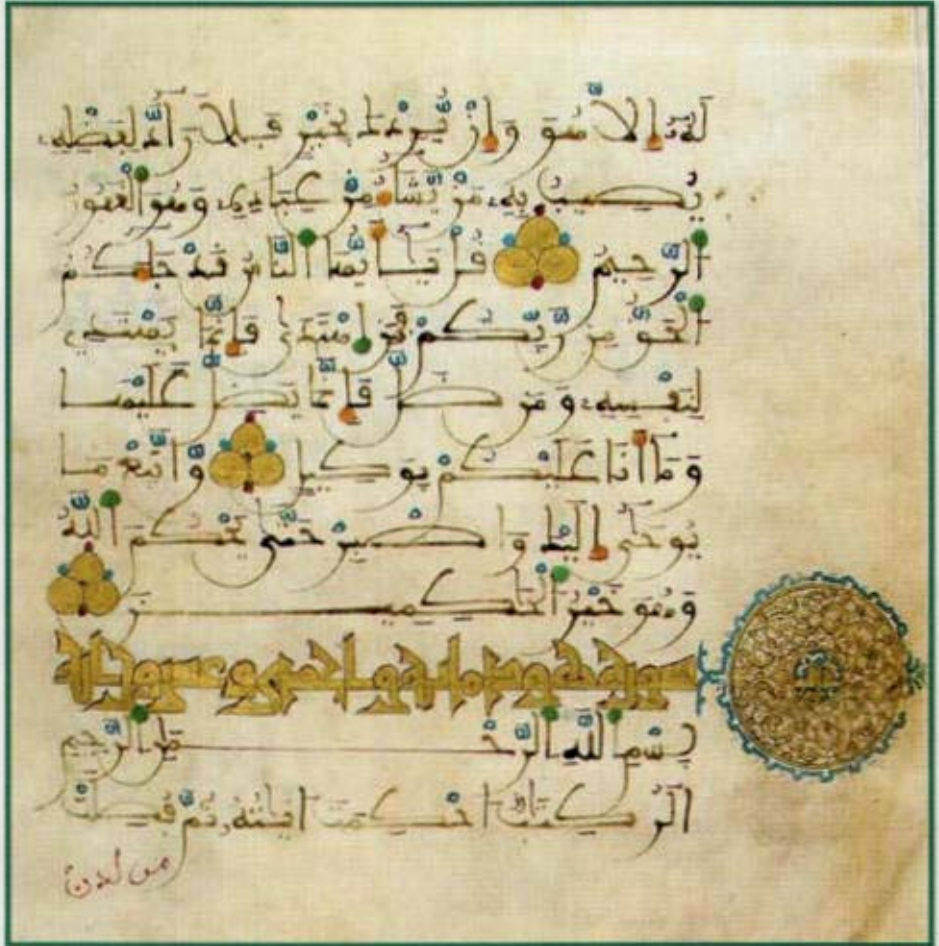 لَهُۥٓ إِلَّا هُوَ وَإِنْ يُّرِدْكَ بِخَيْرٍ فَلَا رَآدَّ لِفَضْلِهِۦ
يُصِيبُ بِهِۦ مَنْ يَّشَآءُ مِنْ عِبَادِهِۦ وَهُوَ الْغَفُورُ
الرَّحِيمُ قُلْ يَٰٓأَيُّهَا النَّاسُ قَدْ جَآءَكُمُ
الْحَقُّ مِن رَّبِّكُمْ فَمَنِ اهْتَدَىٰ فَإِنَّمَا يَهْتَدِي
لِنَفْسِهِۦ وَمَن ضَلَّ فَإِنَّمَا يَضِلُّ عَلَيْهَا
وَمَآ أَنَا عَلَيْكُمْ بِوَكِيلٍ وَاتَّبِعْ مَا
يُوحَىٰٓ إِلَيْكَ وَاصْبِرْ حَتَّىٰ يَحْكُمَ اللَّهُ
وَهُوَ خَيْرُ الْحَٰكِمِينَ
سورة هود مائة وإحدى وعشرون آية
بِسْمِ اللَّهِ الرَّحْمَٰنِ الرَّحِيمِ
الٓر كِتَٰبٌ أُحْكِمَتْ ءَايَٰتُهُۥ ثُمَّ فُصِّلَتْ
من لدن